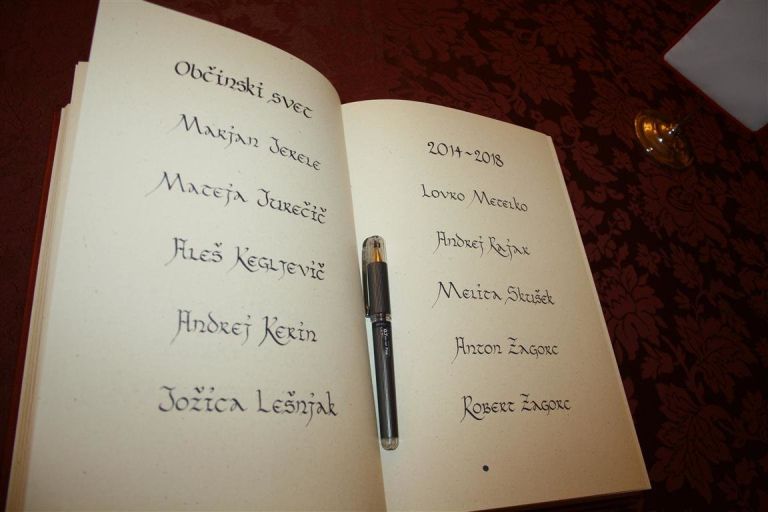 Občinski svet
Marjan Jerele
Mateja Jurečič
Aleš Kegljevič
Andrej Kerin
Jožica Lešnjak
2014-2018
Lovro Metelko
Andrej Rajak
Melita Skušek
Anton Žagorc
Robert Žagorc